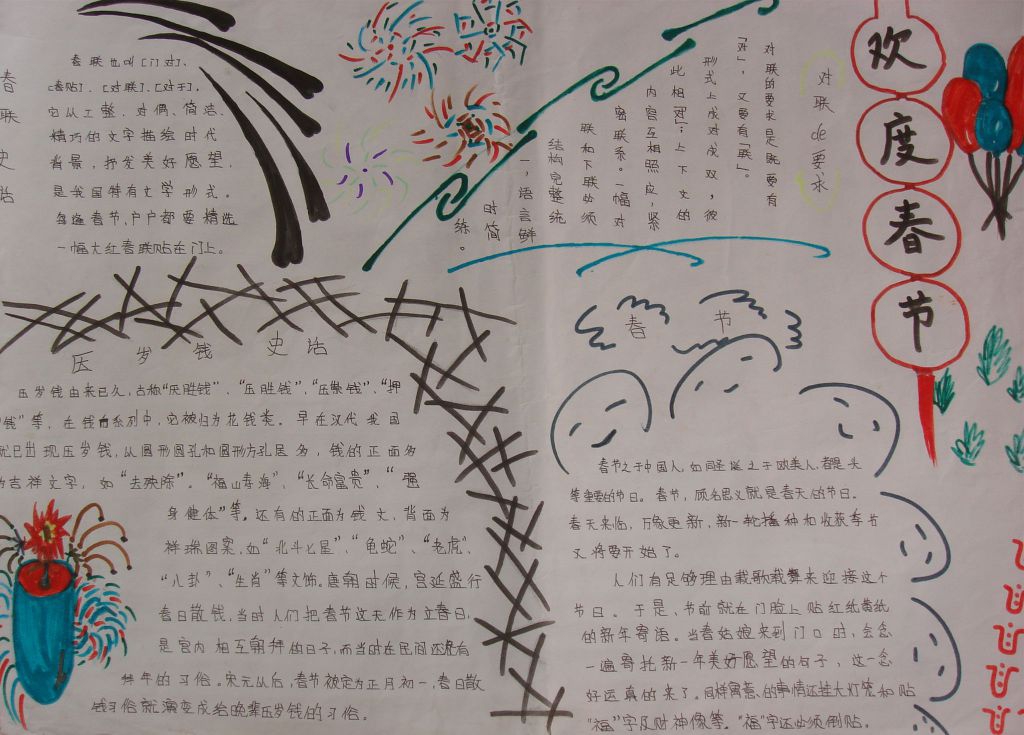 欢度春节
春联史话
春联也叫［门对］、
［春贴］、［对联］、［对子］，
它从工整、对偶、简洁、
精巧的文字描绘时代
背景，抒发美好愿望，
是我国特有文学形式。
每逢春节，户户都要精选
一幅大红春联贴在门上。
对联de要求
对联的要求是既要有
「对」，又要有「联」。
形式上成对成双，彼
此相「对」；上下文的
内容互相照应，紧
密联系。一幅对
联和下联必须
结构完整统
一，语言鲜
时简
练。
压岁钱史话
压岁钱由来已久，古称“厌胜钱”、“压胜钱”、“压祟钱”、“押
钱”等，在钱币系列中，它被归为花钱类。早在汉代我国
就已出现压岁钱，从圆形圆孔和圆形方孔居多，钱的正面多
为吉祥文字，如“去殃除”。“福山寿海”、“长命富贵”，“强
身健体”等。还有的正面为钱文，背面为
祥瑞图案，如“北斗七星”、“龟蛇”、“老虎”、
“八卦”、“生肖”等文饰。唐朝时候，宫廷盛行
春日散钱，当时人们把春节这天作为立春日，
是宫内相互朝拜的日子，而当时在民间还没有
拜年的习俗。宋元从后，春节被定为正月初一，春日散
钱习俗就演变成给晚辈压岁钱的习俗。
春节
春节之于中国人，如同圣诞之于欧美人，都是头
等重要的节日。春节，顾名思义就是春天的节日。
春天来临，万象更新，新一轮播种和收获季节
又将要开始了。
人们有足够理由载歌载舞来迎接这个
节日。于是、节前就在门脸上贴红纸黄纸
的新年寄语。当春姑娘来到门口时，会念
一遍寄托新一年美好愿望的句子，这一念
好运真的来了。同样寓意的事情还挂大灯笼和贴
“福”字及财神像等。“福”字还必须倒贴。